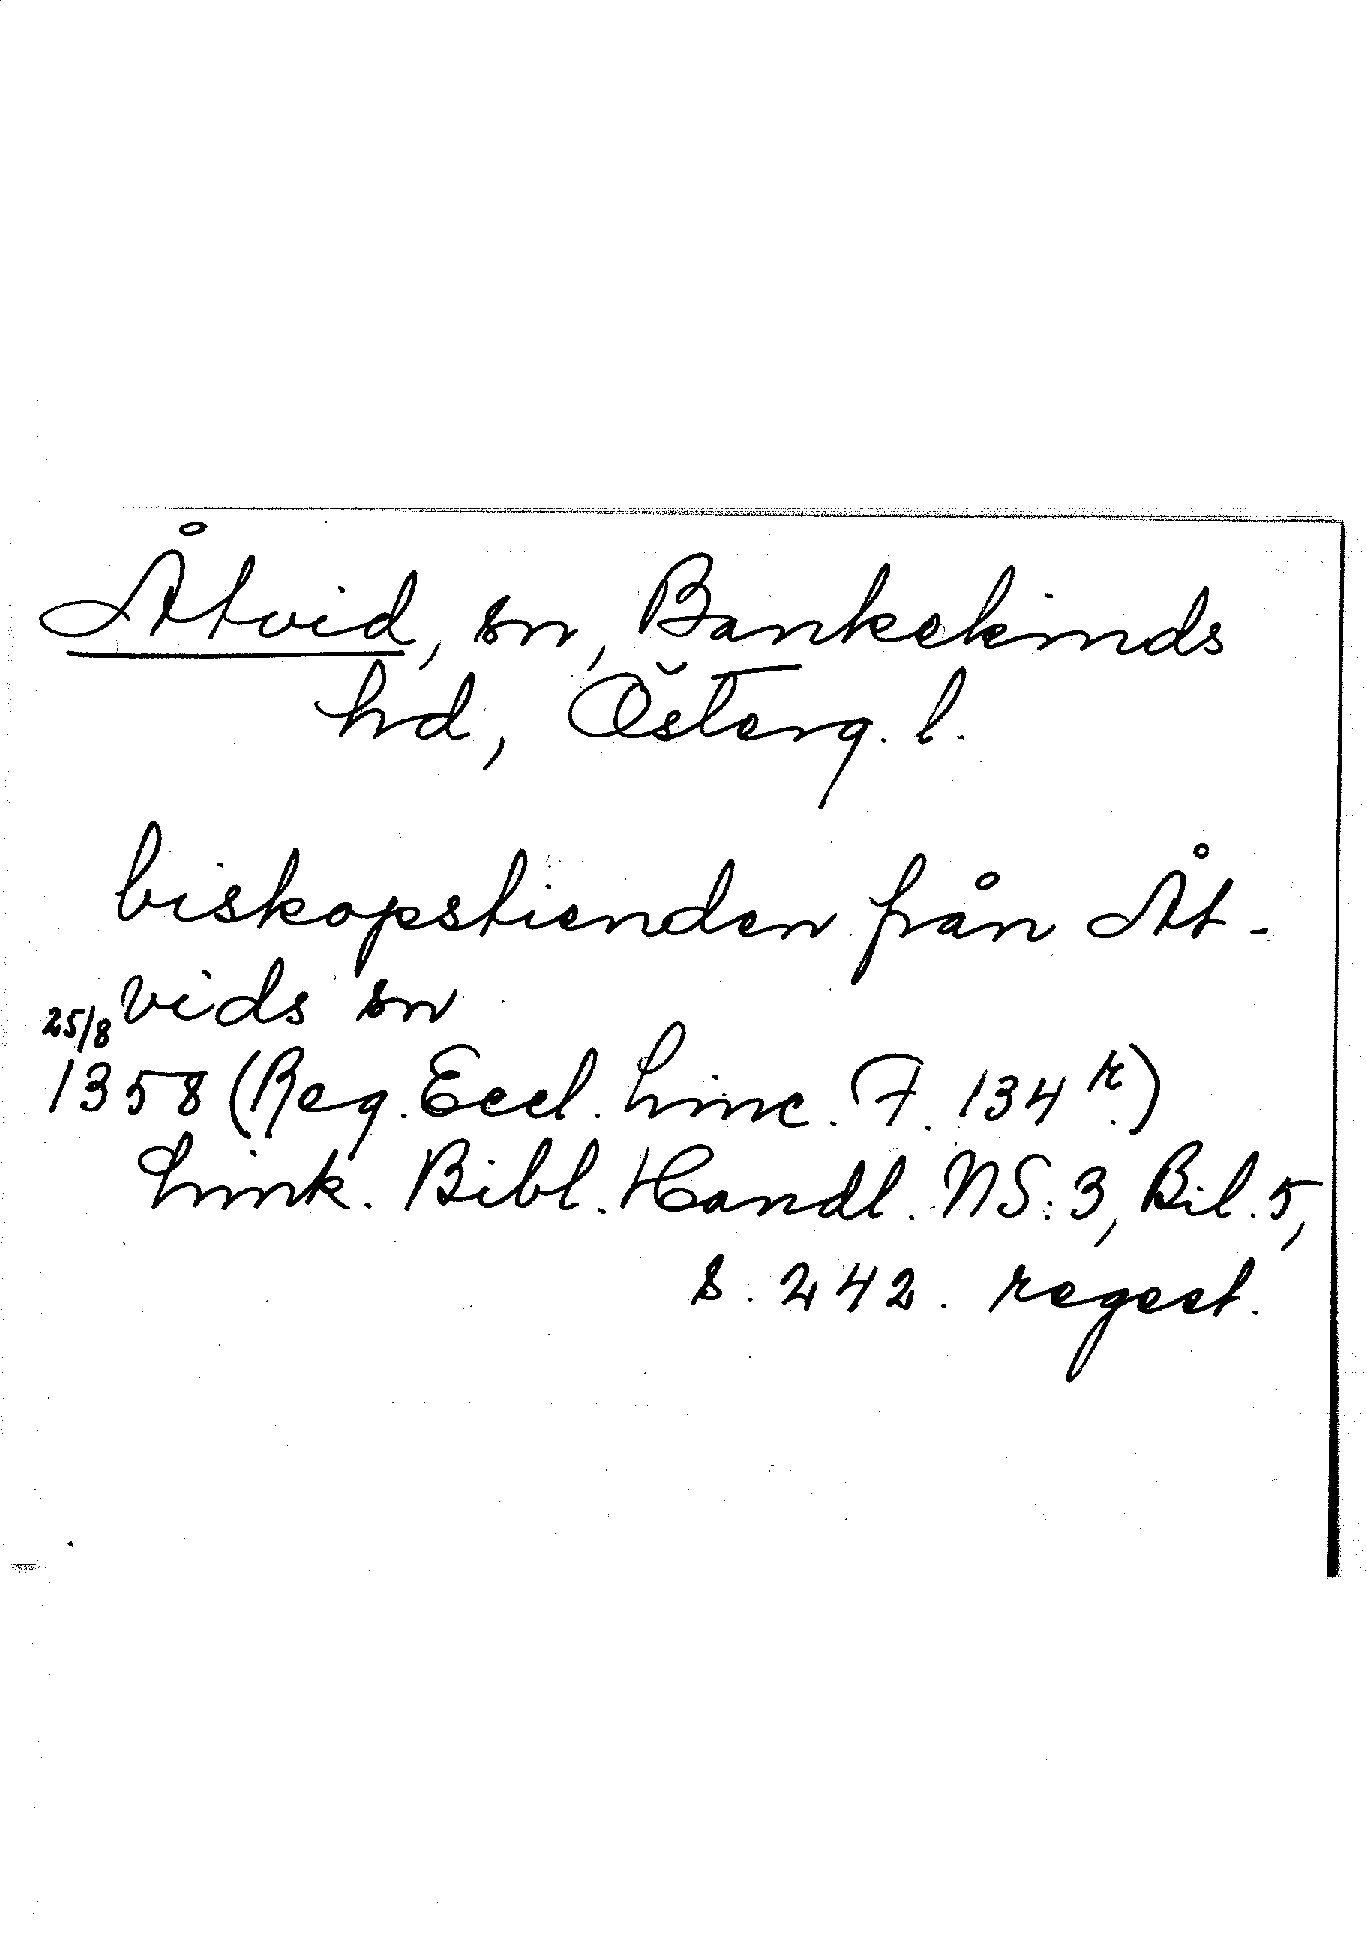 Åtvid, sn, Bankekinds
hd, Österg. l.
biskopstienden från Åt-
vids sn
25/8
1358 (Reg. Eccl. Linc. F. 134 r.)
Link. Bibl. Handl. NS. 3, Bil. 5,
s. 242. regest.